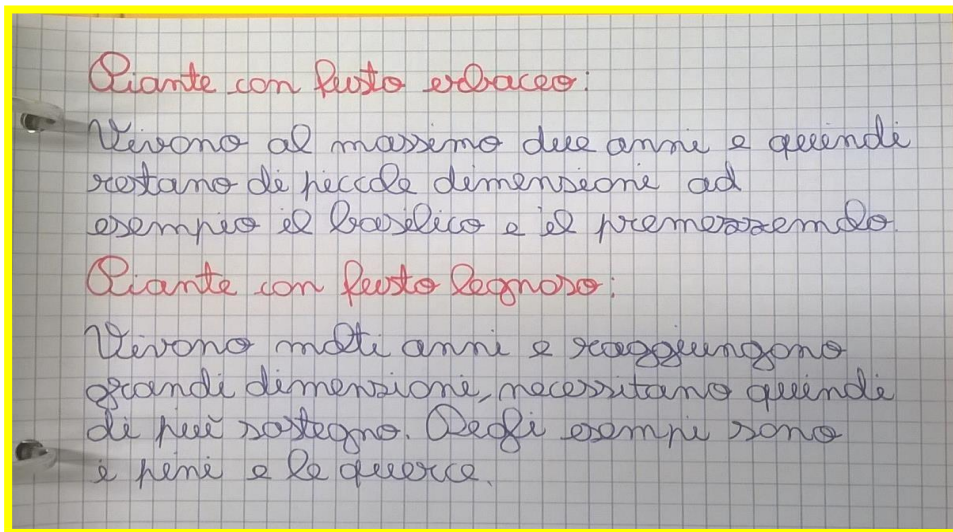 Piante con fusto erbaceo:
Vivono al massimo due anni e quindi
restano di piccole dimensioni ad
esempio il basilico e il premezzemolo.
Piante con fusto legnoso:
Vivono molti anni e raggiungono
grandi dimensioni, necessitano quindi
di più sostegno. Degli esempi sono
i pini e le querce.